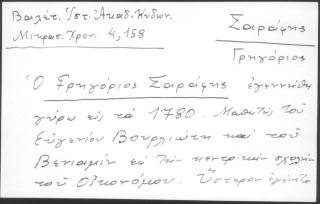 Βαλέτ. Ἱστ. Ἀκαδ. Κυδων.
Μικρασ. Χρον. 4, 158
Σαράφης
Γρηγόριος
Ὁ Γρηγόριος Σαράφης ἐγεννήθη
γύρω εἰς τὰ 1780. Μαθητὴς τοῦ
Εὐγενίου Βουρλιώτη καὶ τοῦ
Βενιαμὶν εἰς τὴν κεντρικὴν σχολὴν
τοῦ Οἰκονόμου. Ὕστερον ἐγένετο